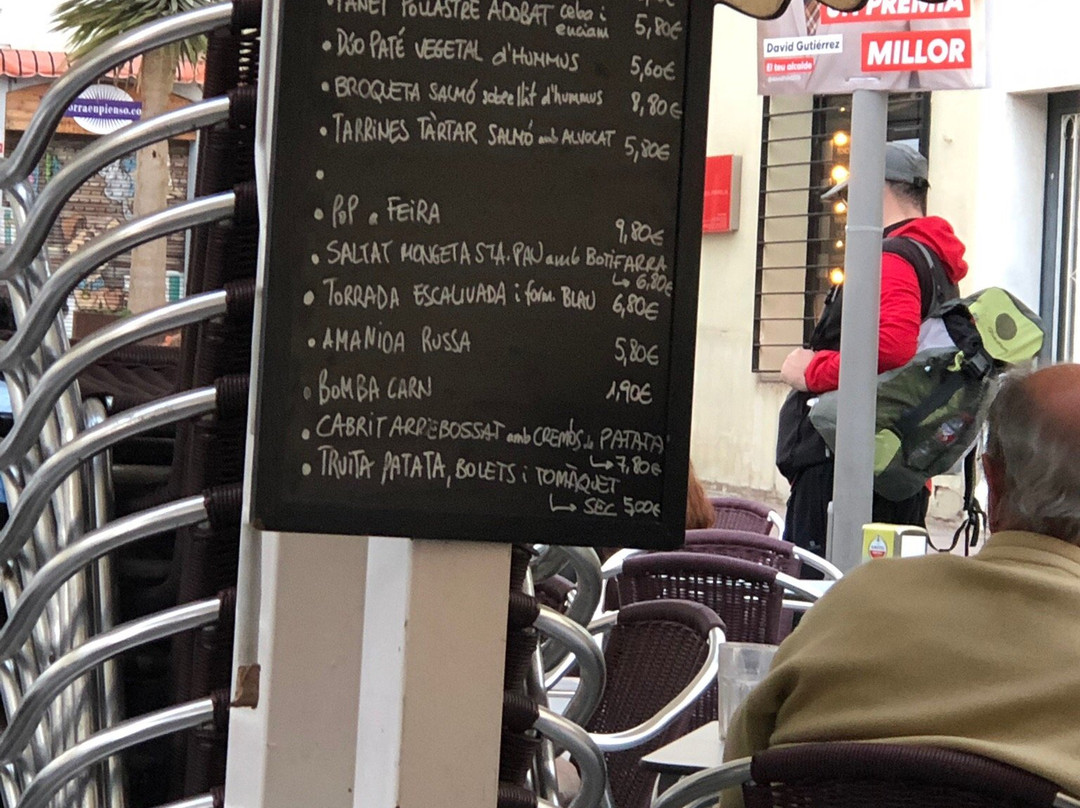 TANET POLLASTRE ADOBAT ceba i
enciam 5,80€
• DÚO PATÉ VEGETAL d'HUMMUS 5,60€
• BROQUETA SALMÓ sobre llit d'hummus 8,80€
• TARRINES TÀRTAR SALMÓ amb ALVOCAT 5,80€
•
• POP a FEIRA 9,80€
• SALTAT MONGETA STA. PAU amb BOTIFARRA
↳ 6,80€
• TORRADA ESCALIVADA i form. BLAU 6,80€
• AMANIDA RUSSA 5,80€
• BOMBA CARN 1,90€
• CABRIT ARREBOSSAT amb CREMÓS de PATATA
↳ 7,80€
• TRUITA PATATA, BOLETS i TOMÀQUET
↳ SEC 5,00€
orraenpienso.co
UN PREMIÀ
MILLOR
David Gutiérrez
El teu alcalde